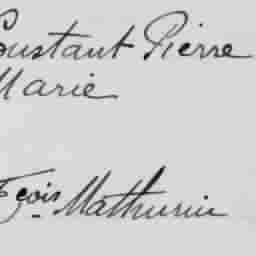 Constant Pierre
Marie
Fçois Mathurin